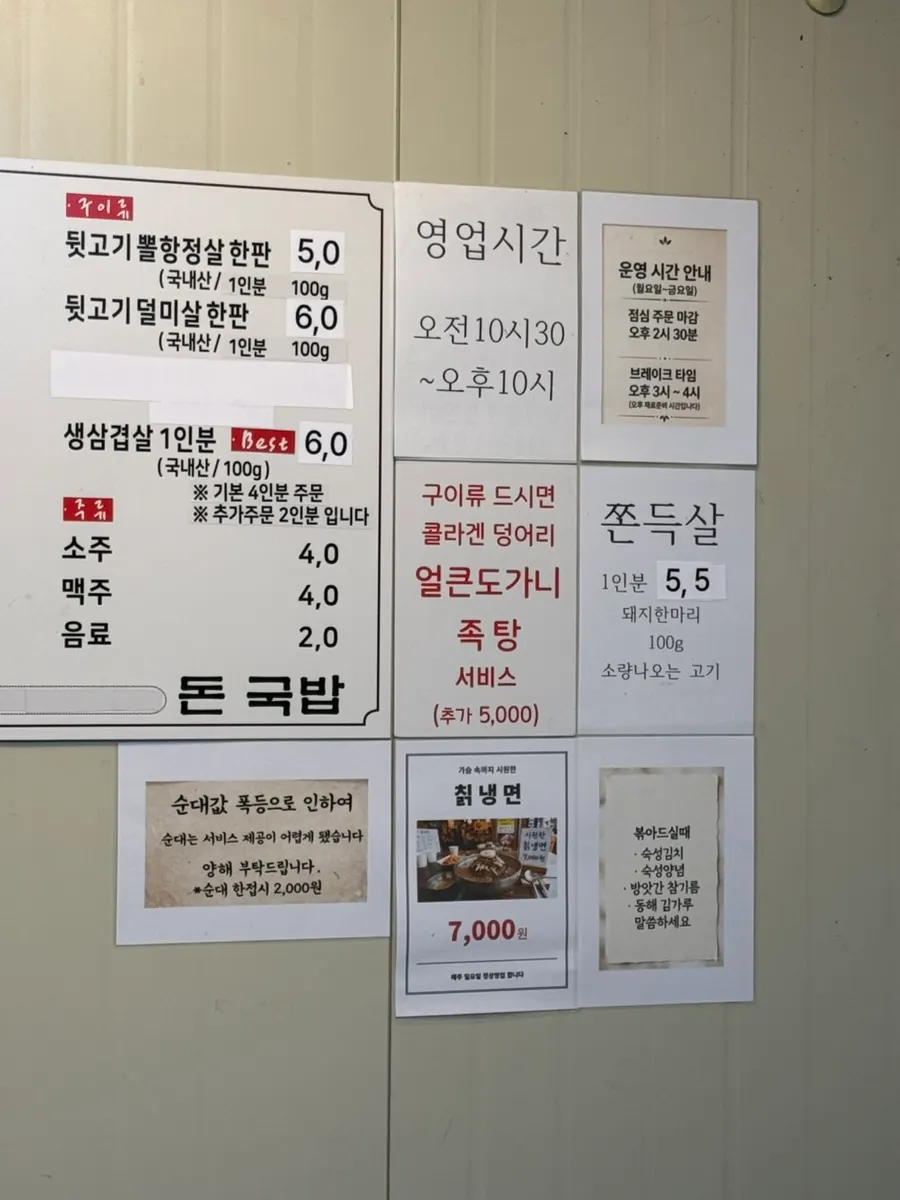 ·구이류
뒷고기 뽈항정살 한판 5,0
(국내산/ 1인분 100g
뒷고기 덜미살 한판 6,0
(국내산/ 1인분 100g
생삼겹살 1인분 ·Best 6,0
(국내산/100g)
※ 기본 4인분 주문
※ 추가주문 2인분 입니다
·주류
소주 4,0
맥주 4,0
음료 2,0
돈 국밥
영업시간
오전10시30
~오후10시
운영 시간 안내
(월요일~금요일)
점심 주문 마감
오후 2시 30분
브레이크 타임
오후 3시 ~ 4시
(오후 재료준비 시간입니다)
구이류 드시면
콜라겐 덩어리
얼큰도가니
족 탕
서비스
(추가 5,000)
쫀득살
1인분 5,5
돼지한마리
100g
소량나오는 고기
순대값 폭등으로 인하여
순대는 서비스 제공이 어렵게 됐습니다
양해 부탁드립니다.
*순대 한접시 2,000원
가슴 속까지 시원한
칡냉면
시원한
칡냉면
7,000원
7,000원
매주 일요일 정상영업 합니다
볶아드실때
· 숙성김치
· 숙성양념
· 방앗간 참기름
· 동해 김가루
말씀하세요